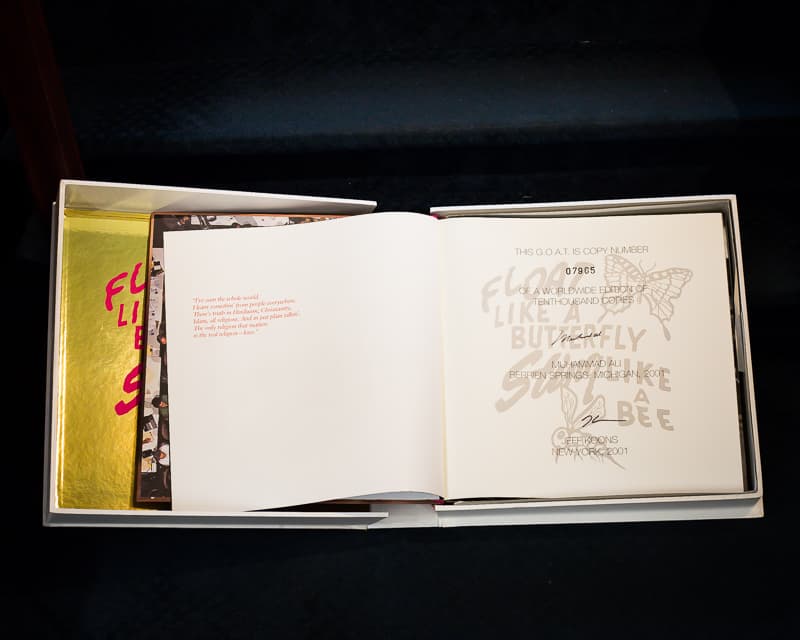 FLO
LI
"I've seen the whole world.
I learn somethin' from people everywhere.
There's truth in Hinduism, Christianity,
Islam, all religions. And in just plain talkin'.
The only religion that matters
is the real religion—love."
THIS G.O.A.T. IS COPY NUMBER
07905
OF A WORLDWIDE EDITION OF
TENTHOUSAND COPIES
Muhammad Ali
MUHAMMAD ALI
BERRIEN SPRINGS, MICHIGAN, 2001
JEFF KOONS
NEW YORK, 2001
FLOAT
LIKE A
BUTTERFLY
STING LIKE
A
BEE